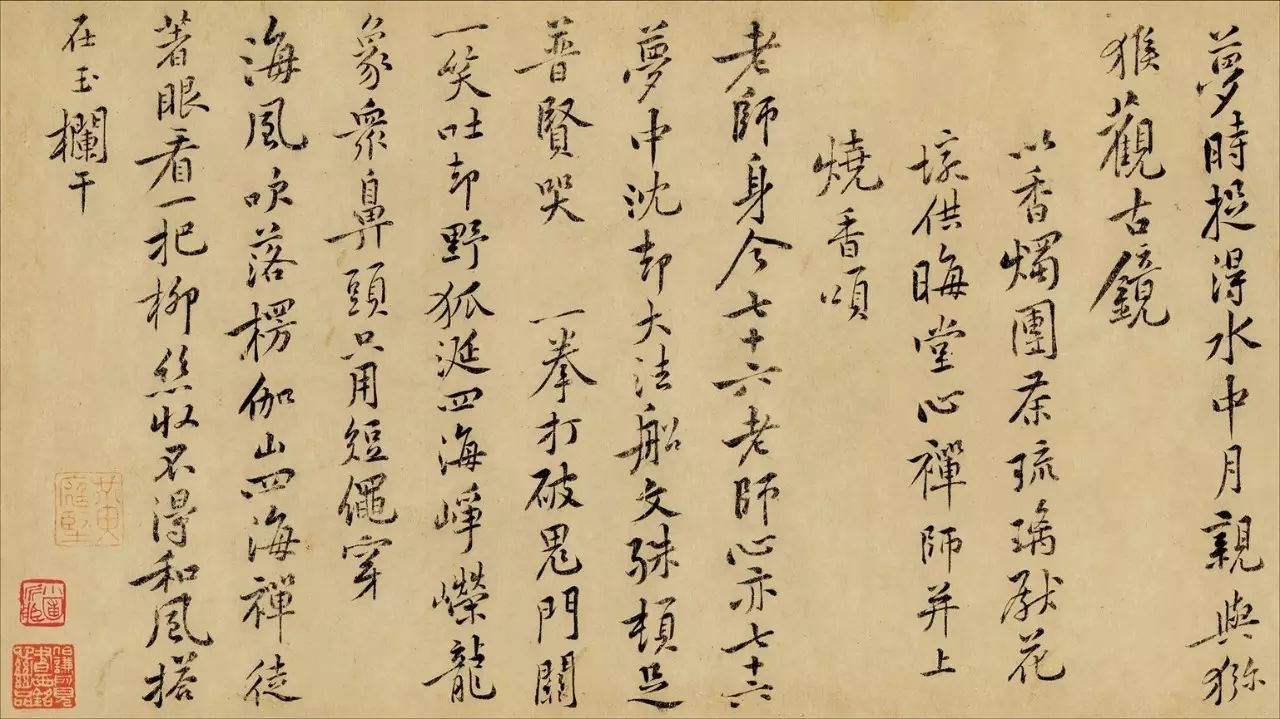 夢時捉得水中月親與獼
猴觀古鏡
以香燭團茶琉璃獻花
椀供晦堂心禪師并上
燒香頌
老師身今七十六老師心亦七十六
夢中沈却大法船文殊頓足
普賢哭 一拳打破鬼門關
一笑吐却野狐涎四海崢嶸龍
象衆鼻頭只用短繩穿
海風吹落楞伽山四海禪徒
著眼看一把柳絲收不得和風搭
在玉欄干
黃庭堅